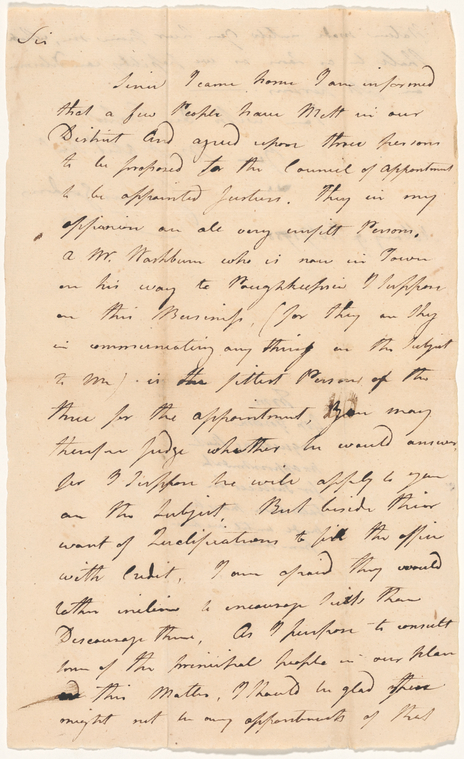 Sir
Since I came home I am informed
that a few People have Mett in our
District And agreed upon three persons
to be proposed to the Council of appointment
to be appointed Justices. They in my
oppinion are all very unfitt Persons.
a Mr. Washburn who is now in Town
on his way to Poughkeepsie I Suppose
on this Business, (for they are
in communicating any thing on the Subject
to me) is the fittest Person of the
three for the appointment, You may
therefore Judge whether he would answer,
for I Suppose he will apply to you
on the Subject. But beside their
want of Qualifications to fill the office
with Credit, I am afraid they would
rather incline to encourage than
Discourage them, As I purpose to consult
some of the principal people in our place
on this Matter, I should be glad there
might not be any appointments of that